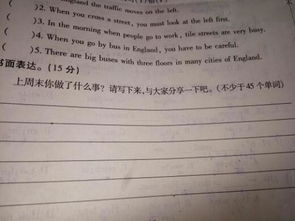 England the traffic moves on the left.
( )2. When you cross a street, you must look at the left first.
( )3. In the morning when people go to work, tile streets are very busy.
( )4. When you go by bus in England, you have to be careful.
( )5. There are big buses with three floors in many cities of England.
书面表达。(15分)
上周末你做了什么事?请写下来,与大家分享一下吧。(不少于45个单词)